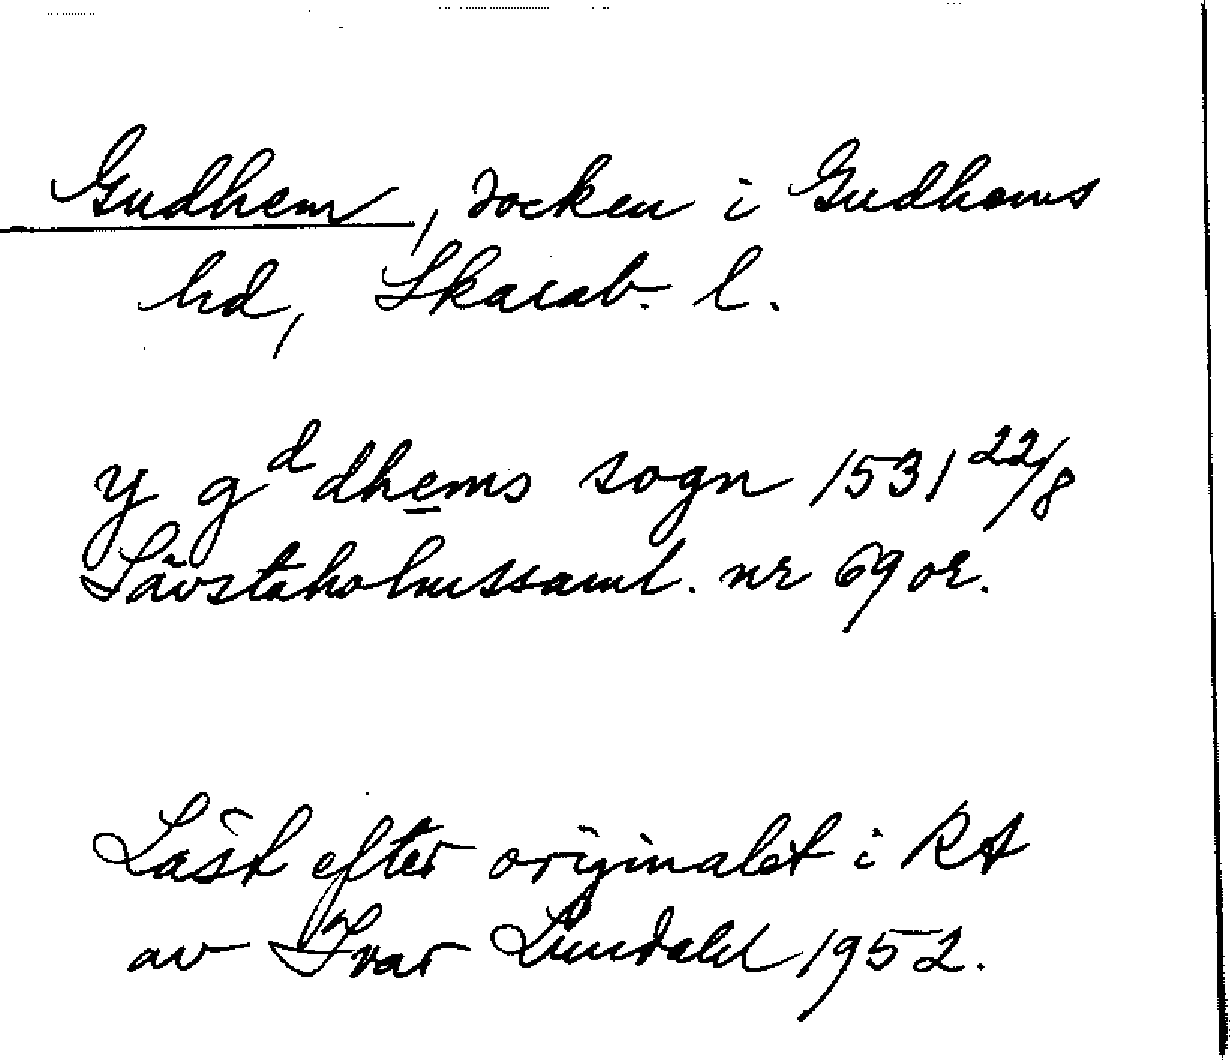 Gudhem, socken i Gudhems
hd, Skarab. l.
y gᵈdhems sogn 1531 22/8
Sävstaholmssaml. nr 69 or.
Läst efter originalet i RA
av Ivar Lundahl 1952.